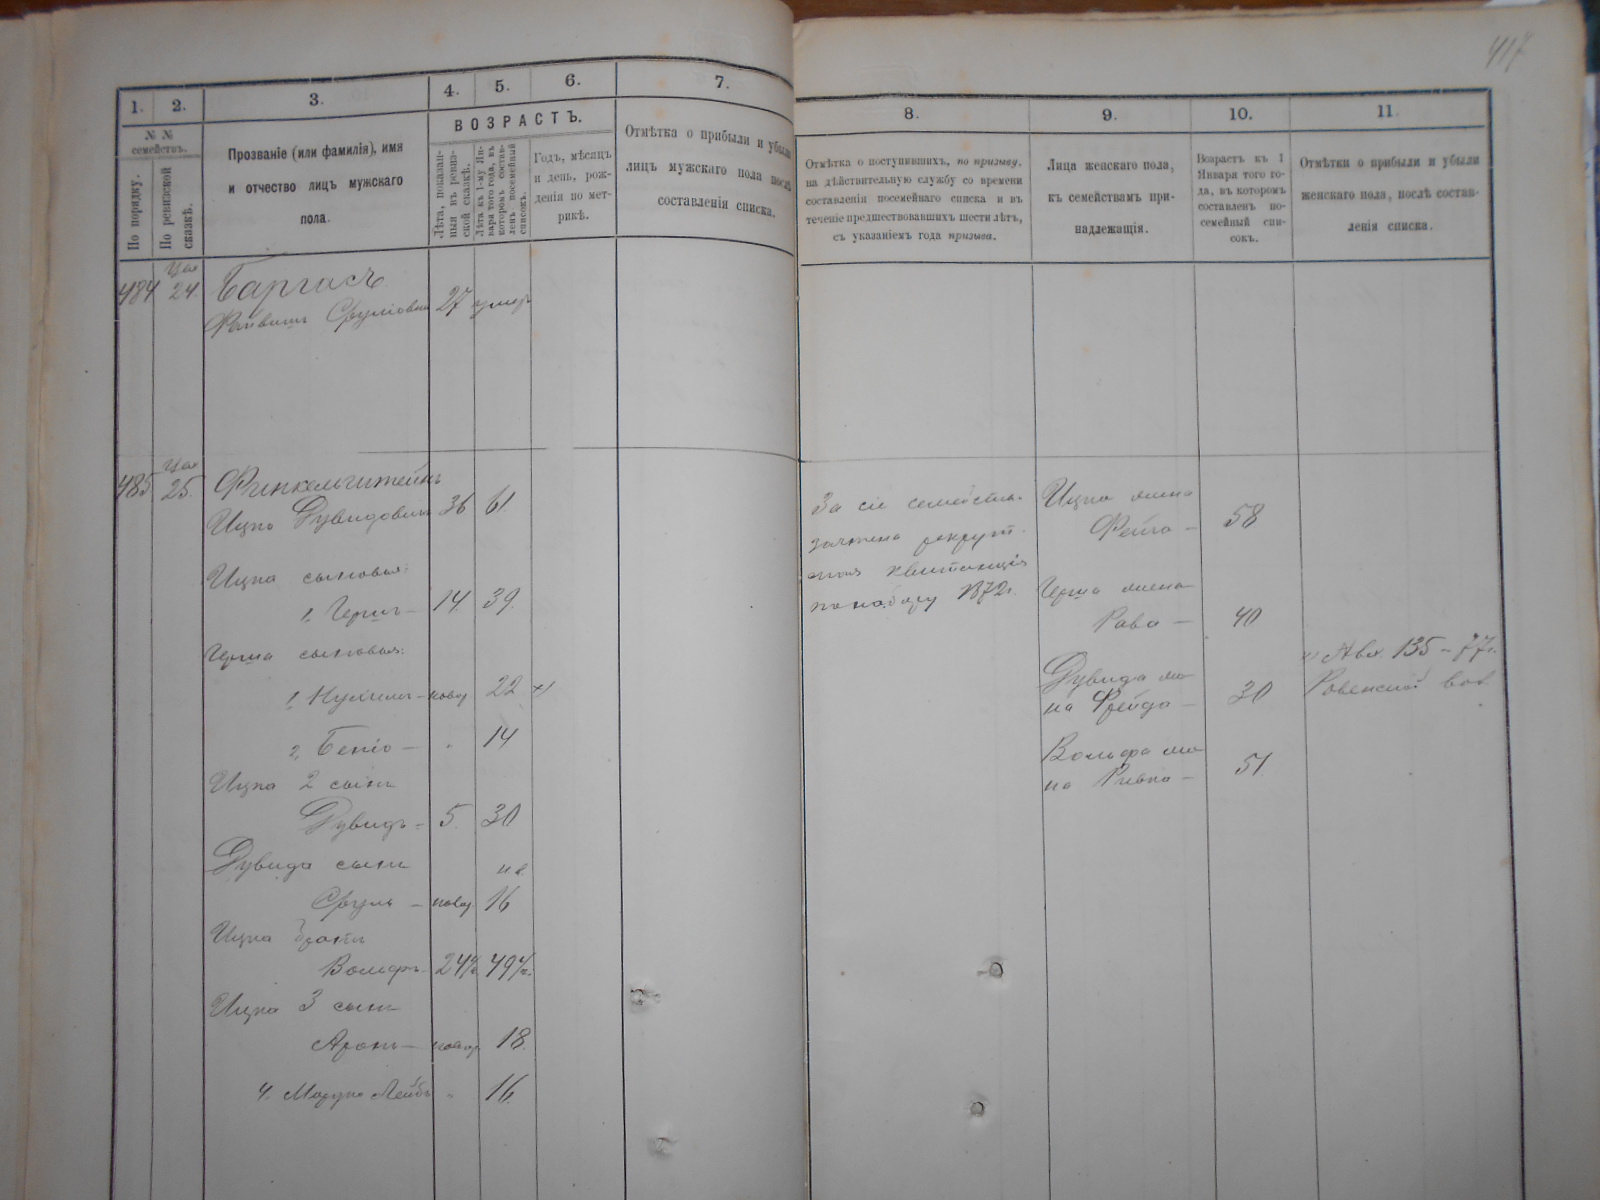 417
1.
2.
3.
4.
5.
6.
7.
8.
9.
10.
11.
№ №
семействъ.
По порядку.
По ревизской
сказкѣ.
Прозваніе (или фамилія), имя
и отчество лицъ мужскаго
пола.
ВОЗРАСТЪ.
Лѣта, показан-
ныя въ ревиз-
ской сказкѣ.
Лѣта къ 1-му Ян-
варя того года, въ
которомъ состав-
ленъ посемейный
списокъ.
Годъ, мѣсяцъ
и день, рож-
денія по мет-
рикѣ.
Отмѣтка о прибыли и убыли
лицъ мужскаго пола послѣ
составленія списка.
Отмѣтка о поступившихъ, по призыву,
на дѣйствительную службу со времени
составленія посемейнаго списка и въ
теченіе предшествовавшихъ шести лѣтъ,
съ указаніемъ года призыва.
Лица женскаго пола,
къ семействамъ при-
надлежащія.
Возрастъ къ 1
Января того го-
да, въ которомъ
составленъ по-
семейный спи-
сокъ.
Отмѣтки о прибыли и убыли
женскаго пола, послѣ состав-
ленія списка.
484 24. Баргасъ
Файвишъ Срулiовъ 27 умер
485 25. Финкельштейнъ
Ицко Дувидовичъ 36 61
Ицка сыновья:
1. Гершъ — 14 39.
Герша сыновья:
1. Нухимъ — новор 22 x)
2. Бенiо — " 14
Ицка 2 сынъ
Дувидъ — 5. 30
Дувида сынъ
Сруль — новор 16
Ицка братъ
Вольфъ — 24½ 49½
Ицка 3 сынъ
Аронъ — новор 18.
4. Лейбъ " 16.
За сіе семейство
зачтена рекрут-
ская квитанція
по набору 1872г.
Ицка жена
Фейга — 58
Герша жена
— 40
Дувида же-
на Фрейда — 30
Вольфа же-
на Ривка — 51.
x) 135 — 77г.
Ровенскій